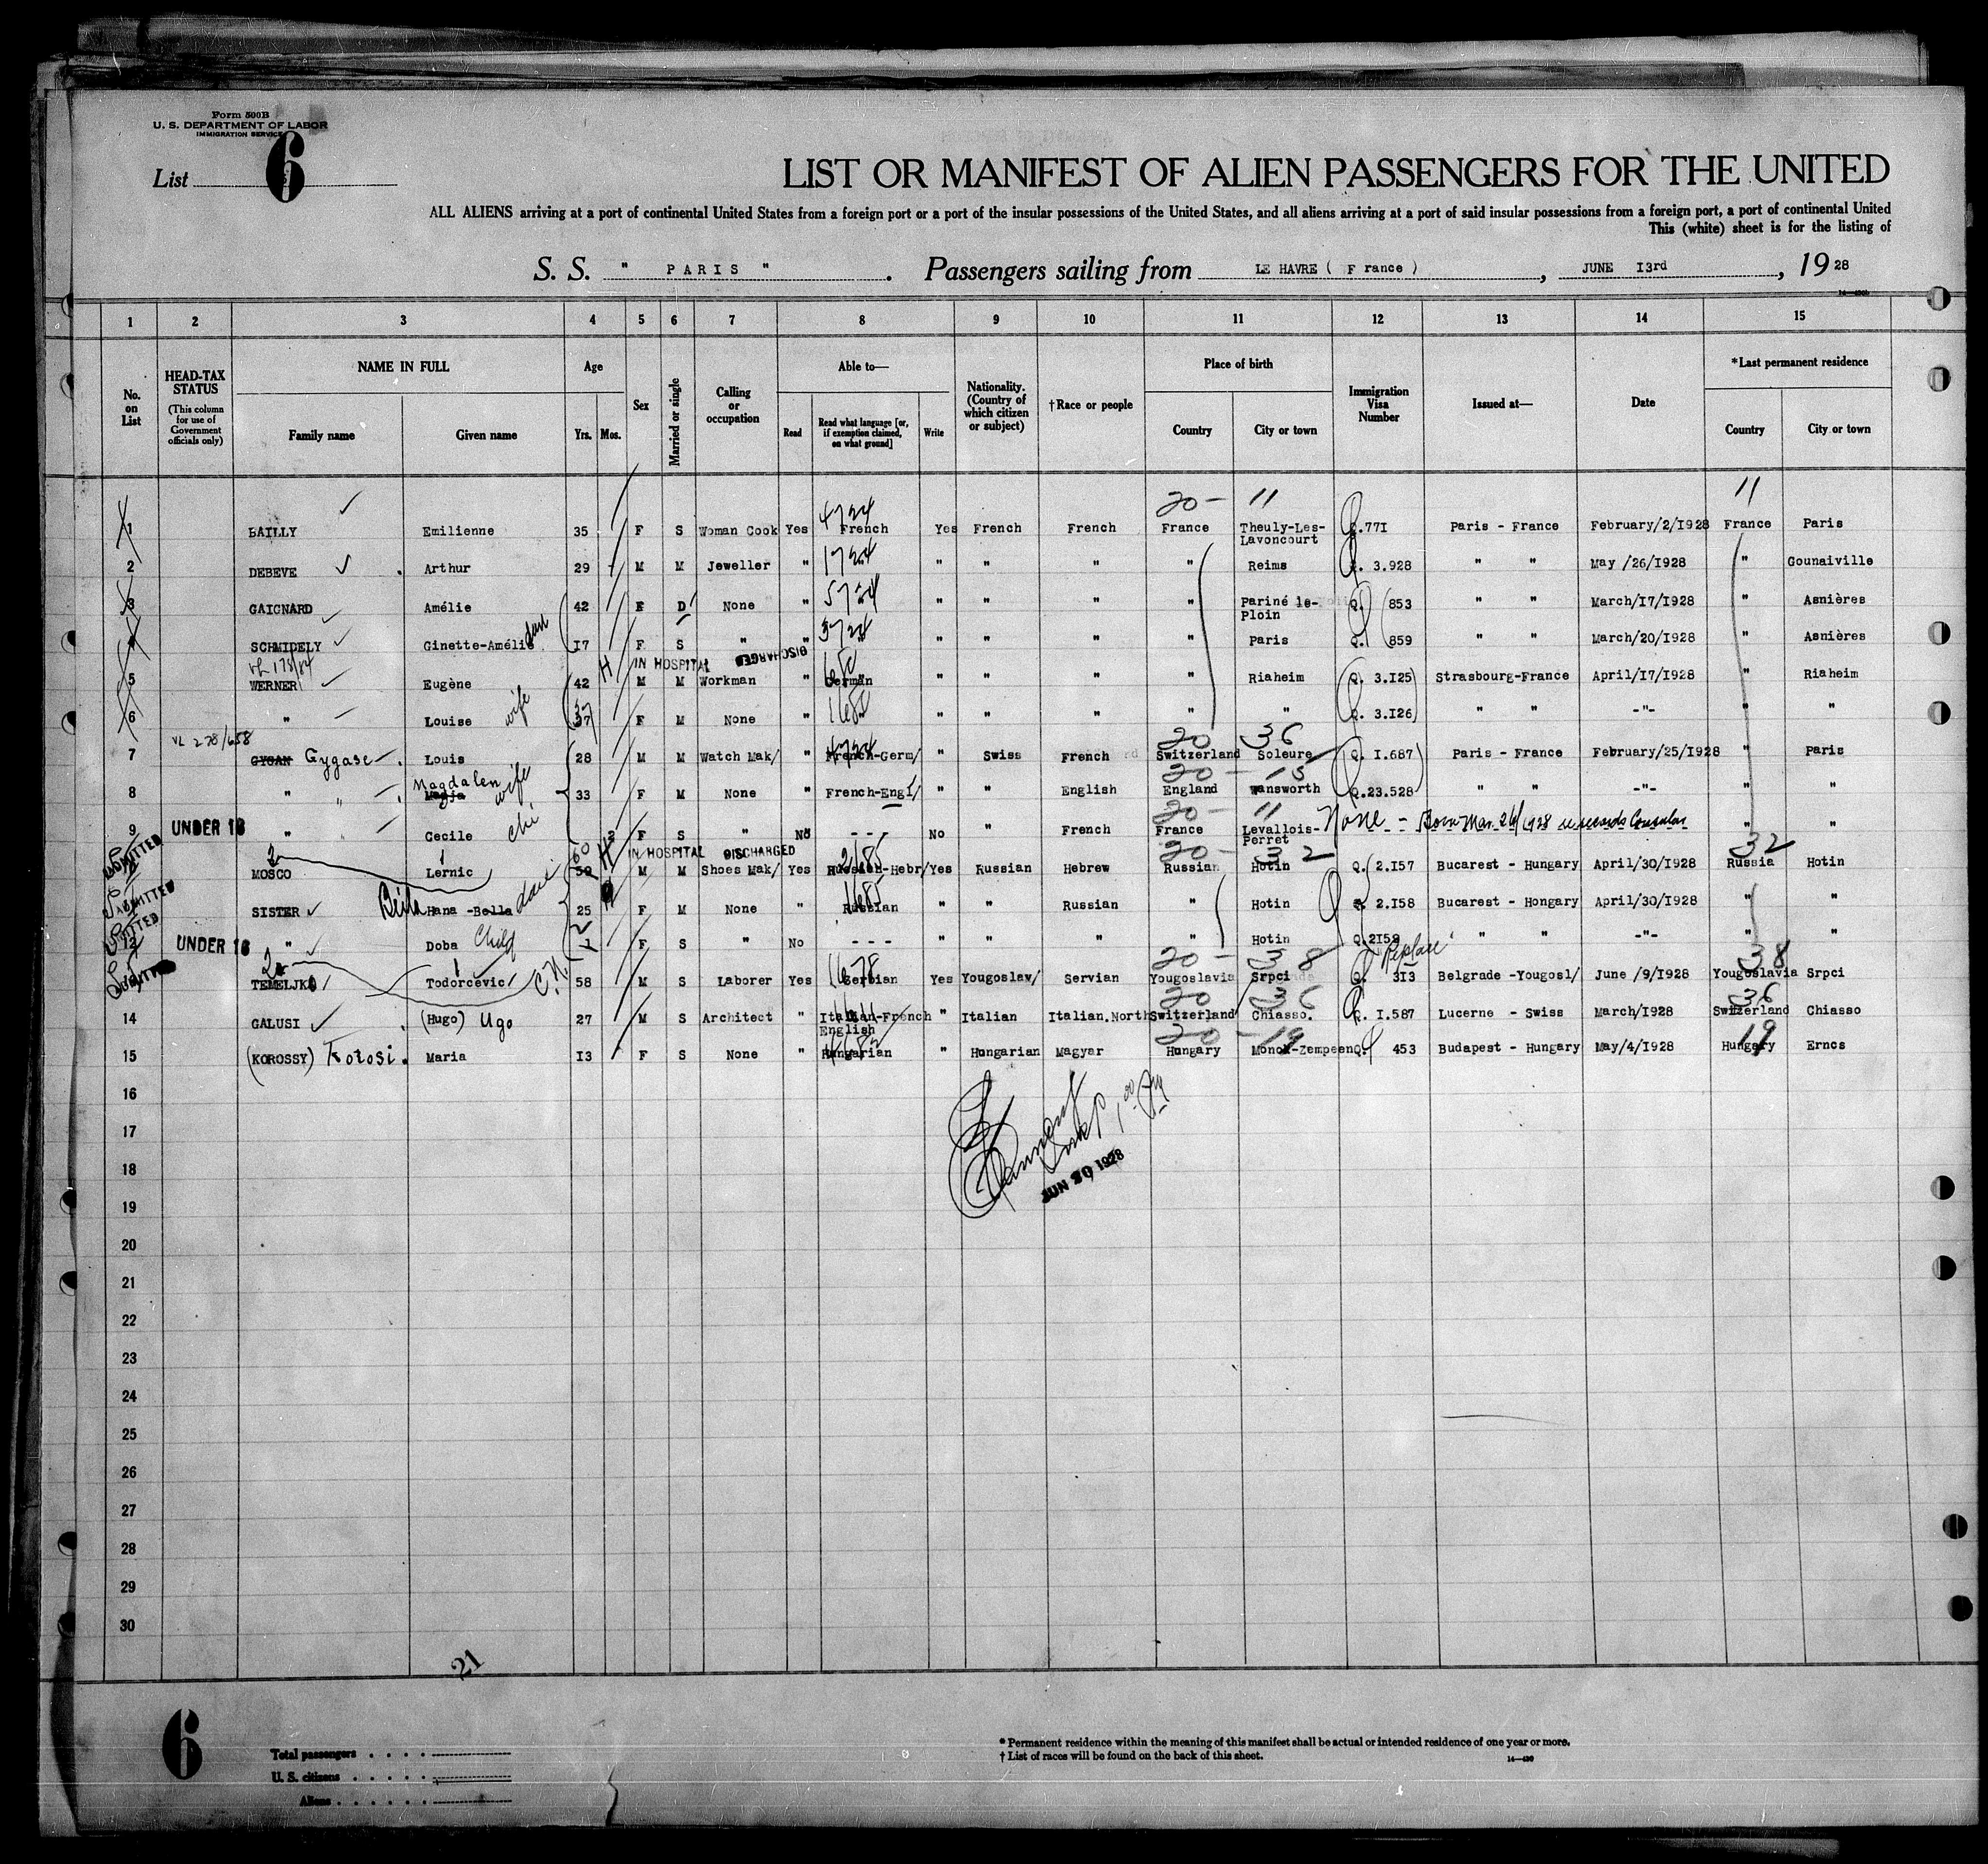 Form 500B
U. S. DEPARTMENT OF LABOR
IMMIGRATION SERVICE
List 6
LIST OR MANIFEST OF ALIEN PASSENGERS FOR THE UNITED
ALL ALIENS arriving at a port of continental United States from a foreign port or a port of the insular possessions of the United States, and all aliens arriving at a port of said insular possessions from a foreign port, a port of continental United
This (white) sheet is for the listing of
S. S. " PARIS ". Passengers sailing from LE HAVRE ( F rance ), JUNE I3rd, 19 28
1 2 3 4 5 6 7 8 9 10 11 12 13 14 15
No. on List
HEAD-TAX STATUS (This column for use of Government officials only)
NAME IN FULL Family name Given name
Age Yrs. Mos.
Sex
Married or single
Calling or occupation
Able to— Read Read what language [or, if exemption claimed, on what ground] Write
Nationality. (Country of which citizen or subject)
†Race or people
Place of birth Country City or town
Immigration Visa Number
Issued at—
Date
*Last permanent residence Country City or town
20 - 11 11
1 BAILLY Emilienne 35 F S Woman Cook Yes French Yes French French France Theuly-Les-Lavoncourt Q.77I Paris - France February/2/I928 France Paris
2 DEBEVE Arthur 29 M M Jeweller " " " " " Reims Q. 3.928 " " May /26/I928 " Gounaiville
3 GAIGNARD Amélie 42 F D None " " " " " Pariné le-Ploin Q. 853 " " March/I7/I928 " Asnières
4 SCHMIDELY Ginette-Amélie I7 F S " " " " " " Paris Q. 859 " " March/20/I928 " Asnières
H IN HOSPITAL DISCHARGED
5 WERNER Eugène 42 M M Workman " German " " " " Riaheim Q. 3.I25 Strasbourg-France April/I7/I928 " Riaheim
6 " Louise wife 37 F M None " " " " " " Q. 3.I26 " " -"- " "
VL 278/658
20 36
7 GYGAN Gygase Louis 28 M M Watch Mak/ " French-Germ/ " Swiss French Switzerland Soleure Q. I.687 Paris - France February/25/I928 " Paris
20 - 15
8 " " Magdalen wife 33 F M None " French-Engl/ " " English England Wansworth Q.23.528 " " -"- " "
20 - 11
9 UNDER 16 " Cecile 2 F S " No - - - No " French France Levallois-Perret None - Born Mar. 26/1928 " "
ADMITTED
H IN HOSPITAL DISCHARGED
20 - 32 32
MOSCO Lernic 50 M M Shoes Mak/ Yes Russian-Hebr/ Yes Russian Hebrew Russian Hotin Q. 2.I57 Bucarest - Hungary April/30/I928 Russia Hotin
ADMITTED
SISTER Beila Hana -Bella 25 F M None " Russian " " Russian " Hotin Q. 2.I58 Bucarest - Hongary April/30/I928 " "
ADMITTED
12 UNDER 16 " Doba Child 1 F S " No - - - " " " " Hotin Q.2I59 " " -"- " "
ADMITTED
20 - 38 38
TEMELJKO Todorcevic 58 M S Laborer Yes Serbian Yes Yougoslaw/ Servian Yougoslavia Srpci Q. 3I3 Belgrade -Yougosl/ June /9/I928 Yougoslavia Srpci
20 36 36
14 GALUSI (Hugo) Ugo 27 M S Architect " Italian-French English " Italian Italian.North Switzerland Chiasso. Q. I.587 Lucerne - Swiss March/I928 Switzerland Chiasso
20 - 19 19
15 (KOROSSY) Maria I3 F S None " Hungarian " Hongarian Magyar Hungary Monok-Zempeen Q. 453 Budapest - Hungary May/4/I928 Hungary Erncs
16
17
18
JUN 20 1928
19
20
21
22
23
24
25
26
27
28
29
30
21
6
Total passengers
U. S. citizens
Aliens
* Permanent residence within the meaning of this manifest shall be actual or intended residence of one year or more.
† List of races will be found on the back of this sheet.
14—430